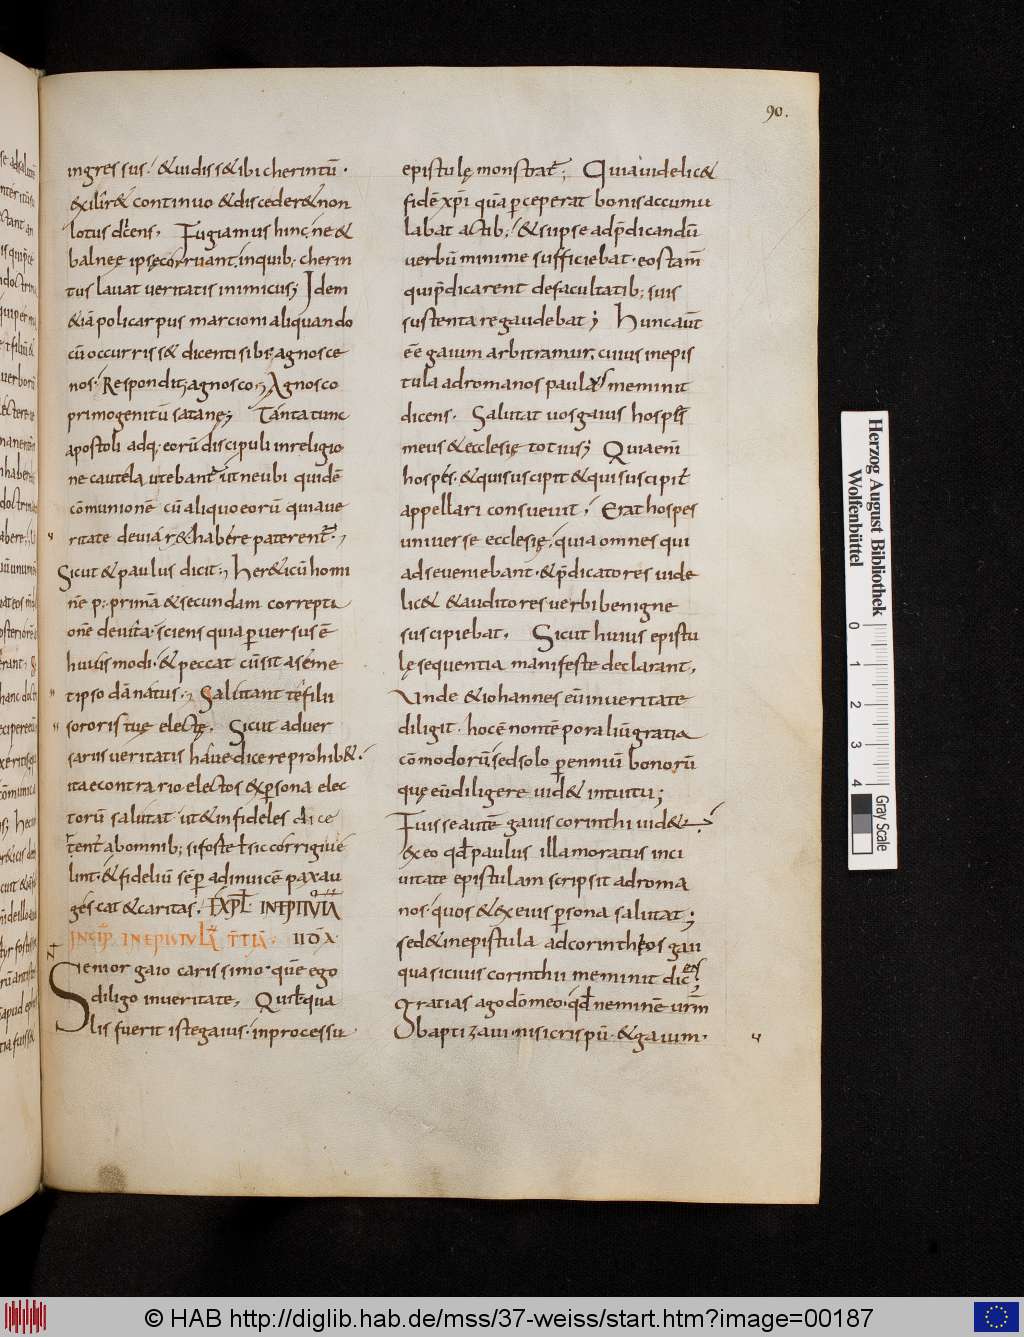 90.
ingressus. & uidiss& ibi cherintū.
exilir& continuo & disceder& non
lotus dicens. Fugiamus hinc, ne &
balneę ipsę corruant, inquib; cherin
tus lauat ueritatis inimicus; Idem
& iā policarpus marcioni aliquando
cū occurriss& dicenti sibi, agnosce
nos. Respondit, agnosco, Agnosco
primogenitū satanę; Tanta tunc
apostoli adq; eorū discipuli inreligio
ne cautela utebant̄ ut ne ubi quidē
cōmunionē cū aliquo eorū qui aue
ritate deuiar& habere paterent̄.
Sicut & paulus dicit; Her&icū homi
nē p̄ primā & secundam correpti
onē deuita. sciens quia ꝑuersus ē
huiusmodi. & peccat cū sit a sem&
ipso dānatus. Salutant te filii
sororis tuę electę. Sicut aduer
sariis ueritatis haue dicere prohib&.
ita econtrario electos ex ꝑsona elec
torū salutat ut & infideles dice
lint. & fideliū sēꝑ adinuicē pax au
gescat & caritas. EXPL̄ INEPITVLĀ
INCIP̄ INEPISTVLĀ T̄TIĀ. IIOX
Senior gaio carissimo. quē ego
diligo inueritate, Quis l̄ qua
lis fuerit iste gaius. inprocessu
epistulę monstrat̄; Quia uidelic&
fidē xp̄i quā ꝑceperat bonis accumu
labat actib; & si ipse ad p̄dicandū
uerbū minime sufficiebat. eos tam̄
qui p̄dicarent de facultatib; suis
sustentare gaudebat; Hunc aut̄
eē gaium arbitramur, cuius inepis
tula ad romanos paulus meminit
dicens. Salutat uos gaius hospes
meus & ecclesię totius; Qui enī
hospes. & qui suscipit & qui suscipit̄
appellari consueuit, Erat hospes
uniuerse ecclesię, quia omnes qui
ad se ueniebant. & p̄dicatores uide
lic& & auditores uerbi benigne
suscipiebat. Sicut huius epistu
lę sequentia manifeste declarant,
Unde & iohannes eū inueritate
diligit. hoc ē non tēporaliū gratia
cōmodorū sed solo ꝑenniū bonorū
quę eū diligere uid& intuitu;
Fuisse autē gaius corinthi uid&ur
ex eo qđ paulus illa moratus inci
uitate epistulam scripsit ad roma
nos. quos & ex eius ꝑsona salutat;
sed & inepistula ad corinthios gaii
quasi ciuis corinthii meminit dicens
Gratias ago dō meo. qđ neminē ur̄m
baptizaui. nisi crispū. & gaium.
Herzog August Bibliothek
Wolfenbüttel
0 1 2 3 4
Gray Scale
© HAB http://diglib.hab.de/mss/37-weiss/start.htm?image=00187